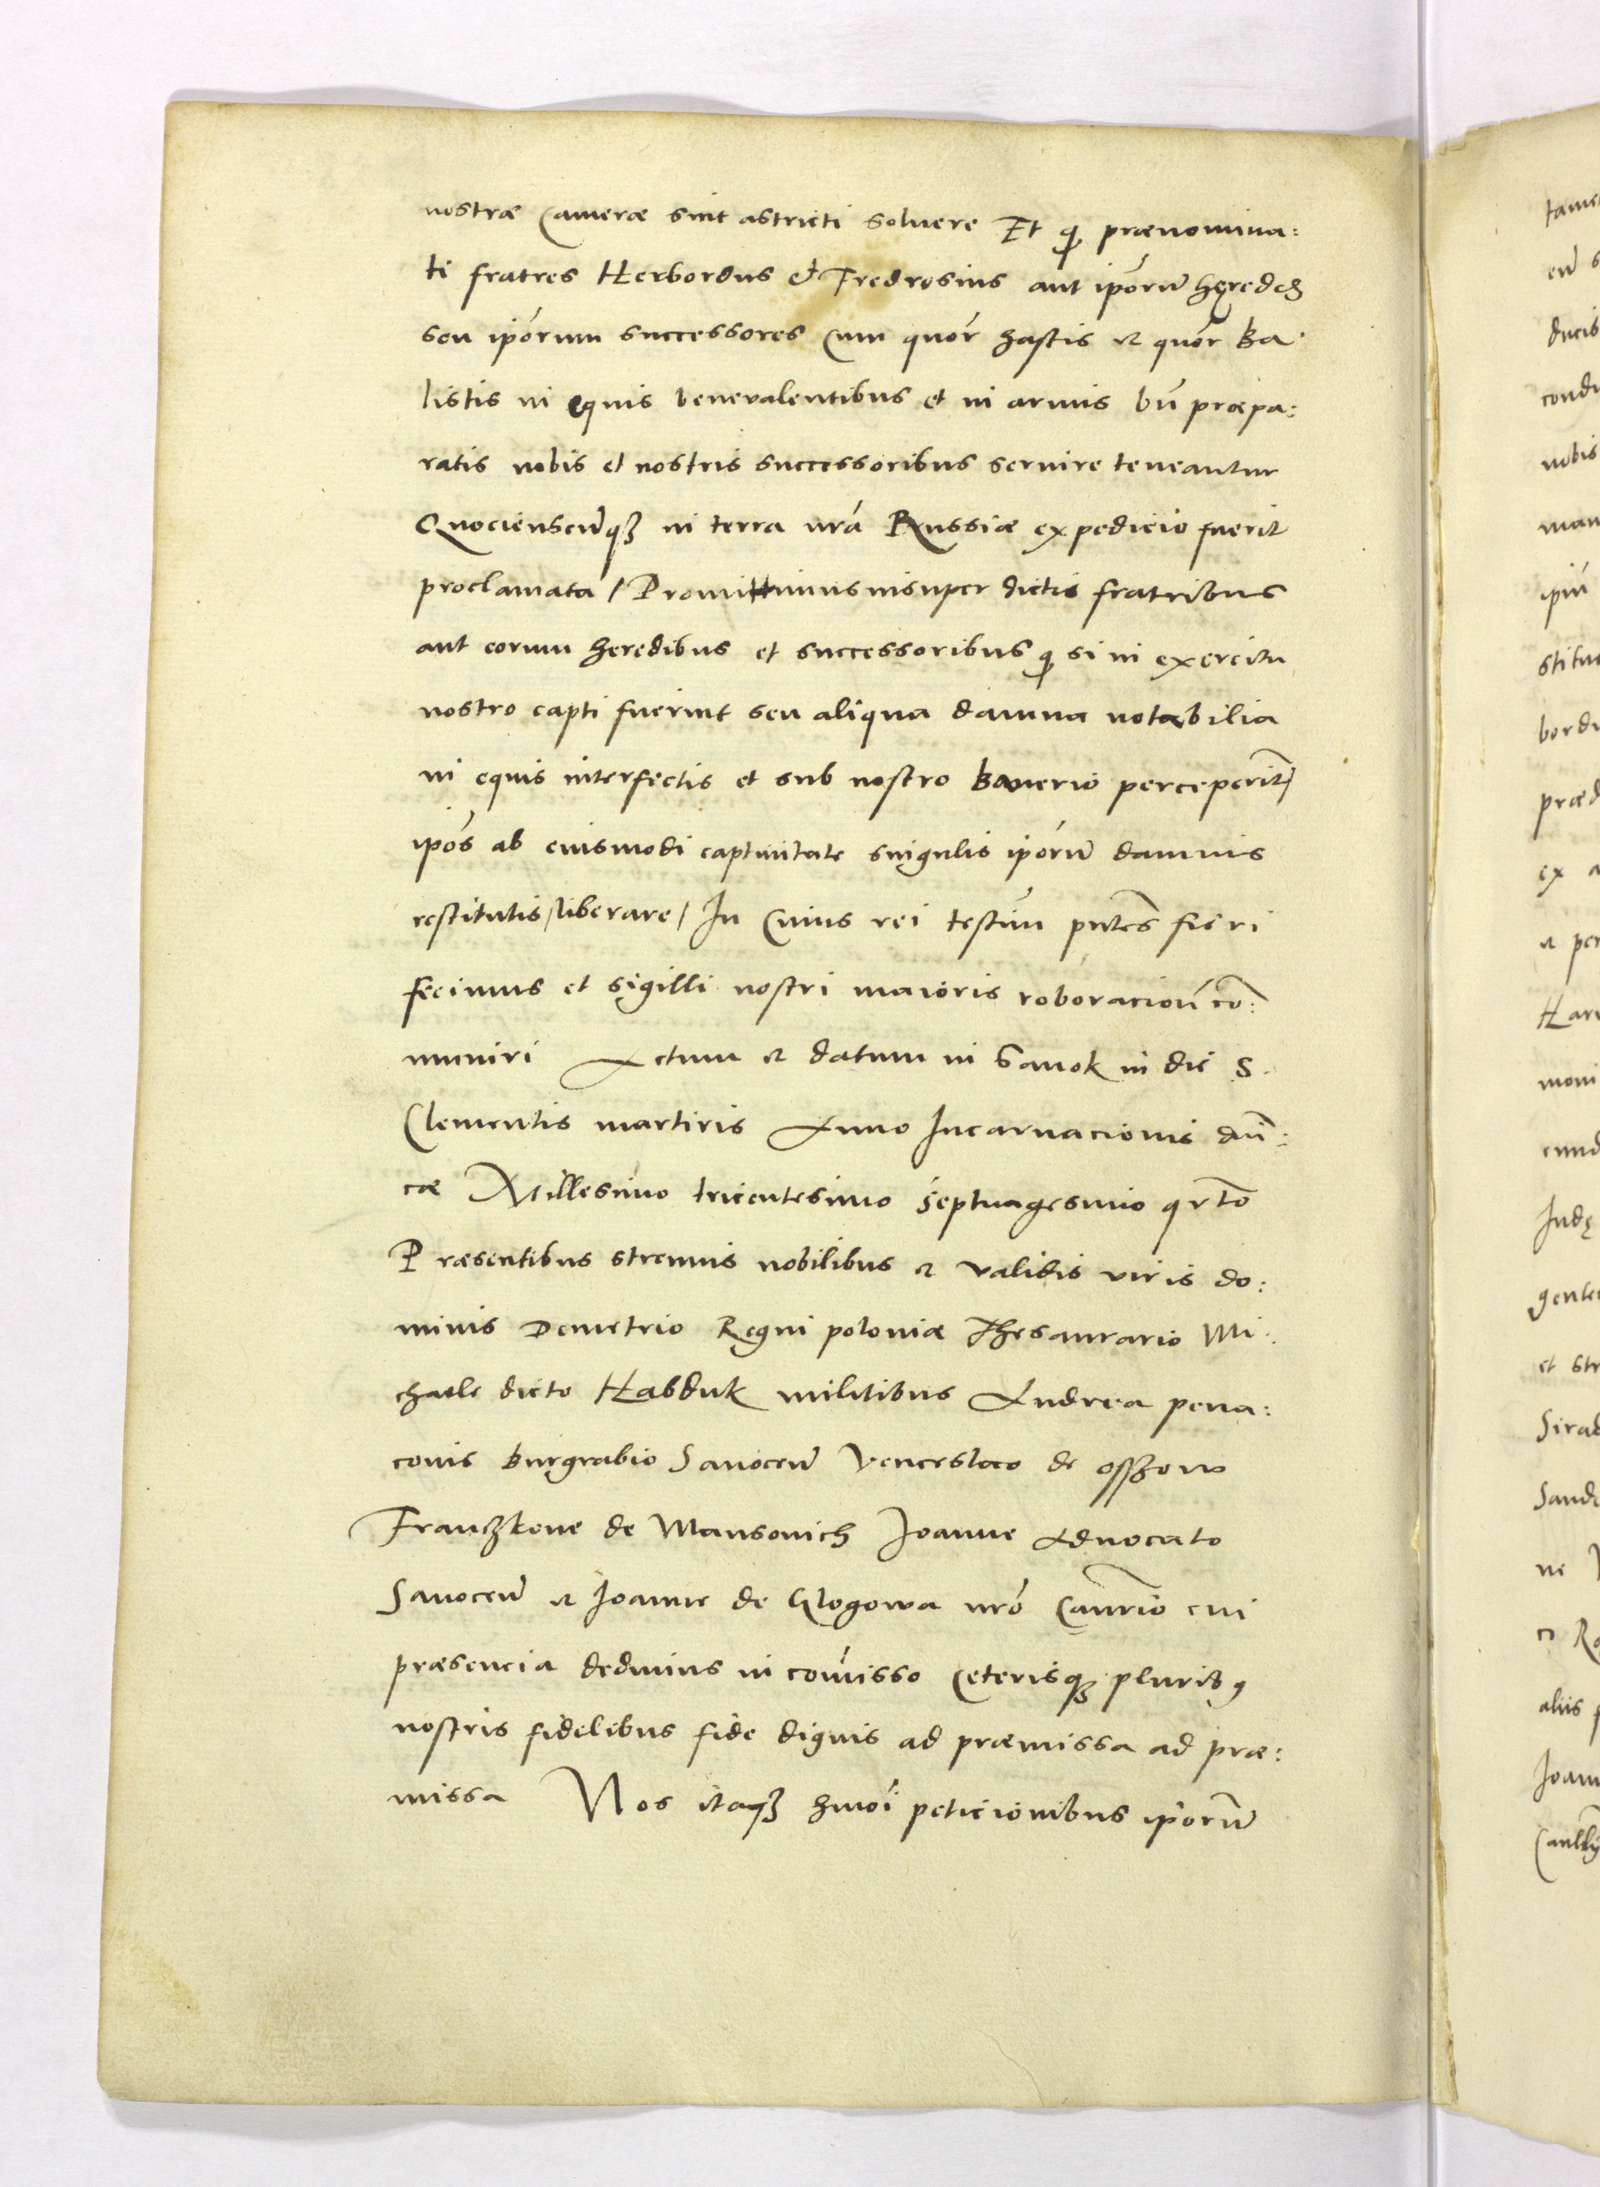 nostræ Cameræ sint astricti soluere Et ꝙ prænomina:
ti fratres Herbordus & Fredrosius aut ipōrum heredes
seu ipōrum successores Cum quōr hastis et quōr Ba
listis in equis benevalentibus et in armis bn̄ præpa:
ratis nobis et nostris successoribus seruire teneantur
Quociensc̄unqꝫ in terra nrā Russiæ expedicio fuerit
proclamata / Promittimus insuper dictis fratribus
aut eorum heredibus et successoribus ꝙ si in exercitu
nostro capti fuerint seu aliqua damna notabilia
in equis interfectis et sub nostro banerio perceperint̄ /
ipōs ab euismodi captiuitate singulis ipōrum damnis
restitutis / liberare / In Cuius rei testim̄ pn̄tes fieri
fecimus et sigilli nostri maioris roboracion̄ cō:
muniri Actum et datum in Sanok in die S.
Clementis martiris Anno Incarnacionis dn̄i:
cæ Millesimo tricentesimo septuagesimo qrto
Præsentibus strenuis nobilibus et validis viris do:
minis Demetrio Regni poloniæ Thesaurario Mi:
chaele dicto Habduk militibus Andrea pena:
conis burgrabio Sanocen̄ Venceslao de Osszow
Franczkone de Mansovich Joanne Aduocato
Sanocen̄ et Joanne de Glogowa nrō Canrīo cui
præsencia dedimus in com̄isso Ceterisqꝫ pluribꝰ
nostris fidelibus fide dignis ad præmissa ad præ:
missa Nos itaqꝫ hmōi peticionibus ipōrum